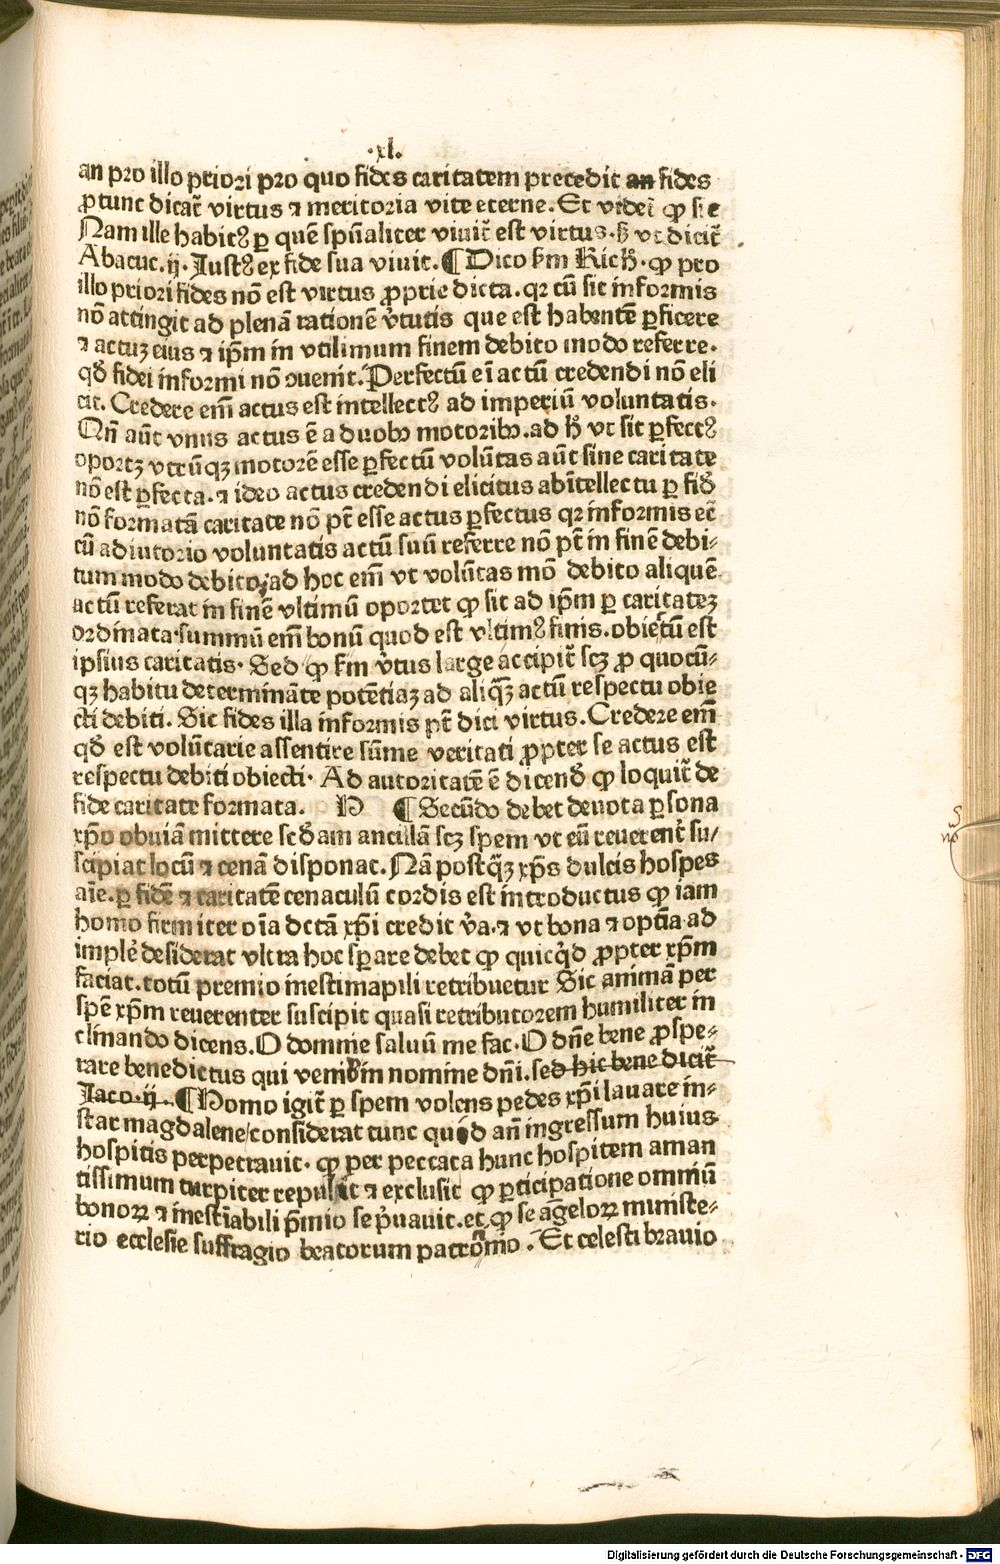 ·xl.
an pro illo priori pro quo fides caritatem precedit an fides
ꝓtunc dicat̄ virtus ⁊ meritoria vite eterne. Et videt̄ ꝙ sic
Nam ille habitꝰ ꝑ quē spūaliter viuit̄ est virtus· ꝫ vt dicit̄
Abacuc. ij. Iustꝰ ex fide sua viuit. ¶ Dico ẜm Rich̄· ꝙ pro
illo priori fides nō est virtus ꝓprie dicta. qꝛ cū sit informis
nō attingit ad plenā rationē v̓tutis que est habentē ꝑficere
⁊ actuꝫ eius ⁊ ip̄m in vltimum finem debito modo referre.
qd̄ fidei informi nō ꝯuenit. Perfectū em̄ actū credendi nō eli
cit. Credere em̄ actus est intellectꝰ ad imperiū voluntatis.
Qn̄ aūt vnus actus ē a duobꝰ motoribꝰ. ad hꝰ vt sit ꝑfectꝰ
oportꝫ vtrūqꝫ motorē esse ꝑfectū volūtas aūt sine caritate
nō est ꝑfecta. ⁊ ideo actus credendi elicitus ab intellectu ꝑ fidē
nō formatā caritate nō pt̄ esse actus ꝑfectus qꝛ informis etc̄
cū adiutorio voluntatis actū suū referre nō pt̄ in finē debi-
tum modo debito. ad hoc em̄ vt volūtas mō debito aliquē
actū referat in finē vltimū oportet ꝙ sit ad ip̄m ꝑ caritateꝫ
ordinata· summū em̄ bonū quod est vltimꝰ finis. obiectū est
ipsius caritatis· Sed ꝙ ẜm v̓tus large accipit̄ scꝫ ꝓ quocū-
qꝫ habitu determināte potētiaꝫ ad aliqꝫ actū respectu obie
cti debiti. Sic fides illa informis pt̄ dici virtus. Credere em̄
qd̄ est volūtarie assentire sūme veritati ꝓpter se actus est
respectu debiti obiecti· Ad autoritatē ē dicend̄ ꝙ loquit̄ de
fide caritate formata. H ¶ Secūdo debet deuota ꝑsona
xp̄o obuiā mittere scd̄am ancillā scꝫ spem vt eū reuerent̓ su/
scipiat locū ⁊ cenā disponat. Nā postqꝫ xp̄s dulcis hospes
aīe. ꝑ fidē ⁊ caritatē cenaculū cordis est introductus ꝙ iam
homo firmiter oīa dctā xp̄i credit v̓a. ⁊ vt bona ⁊ optīa ad
implē desiderat vltra hoc sꝑare debet ꝙ quicqd̄ ꝓpter xp̄m
faciat. totū premio inestimapili retribuetur Sic animā per
spē xp̄m reuerenter suscipit quasi retributorem humiliter in
clinando dicens. O domine saluū me fac. O dn̄e bene ꝓspe-
rare benedictus qui venit in nomine dn̄i. sed hic bene dicit̄
Iaco. ij. ¶ Homo igit̄ ꝑ spem volens pedes xp̄i lauare in-
star magdalene/ considerat tunc quid an̄ ingressum huius
hospitis perpetrauit· ꝙ per peccata hunc hospitem aman
tissimum turpiter repulit ⁊ exclusit ꝙ ꝑticipatione omniū
bonoꝝ ⁊ inestīabili p̄mio se p̓uauit. et ꝙ se āgeloꝝ ministe-
rio ecclesie suffragio beatorum patrōnio. Et celesti brauio
Digitalisierung gefördert durch die Deutsche Forschungsgemeinschaft - DFG